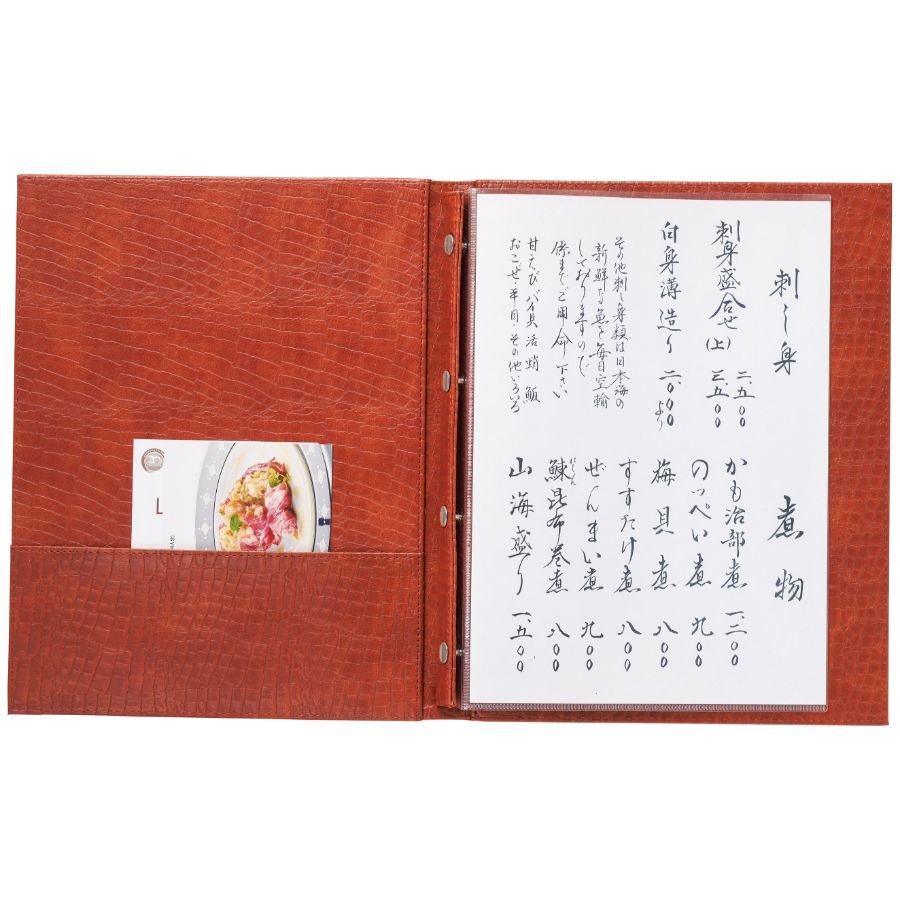 刺し身
刺身盛合せ(上) 二、五〇〇
三、五〇〇
白身薄造り 二、〇〇〇より
その他刺し身類は日本海の
新鮮な魚を毎日空輸
しておりますので
係までご用命下さい
甘えび バイ貝 活蛸
おこぜ・平目・その他いろいろ
煮物
かも治部煮 一、二〇〇
のっぺい煮 九〇〇
梅貝煮 八〇〇
すすたけ煮 八〇〇
ぜんまい煮 九〇〇
鰊昆布巻煮 八〇〇
にしん
山海盛り 一、五〇〇
L